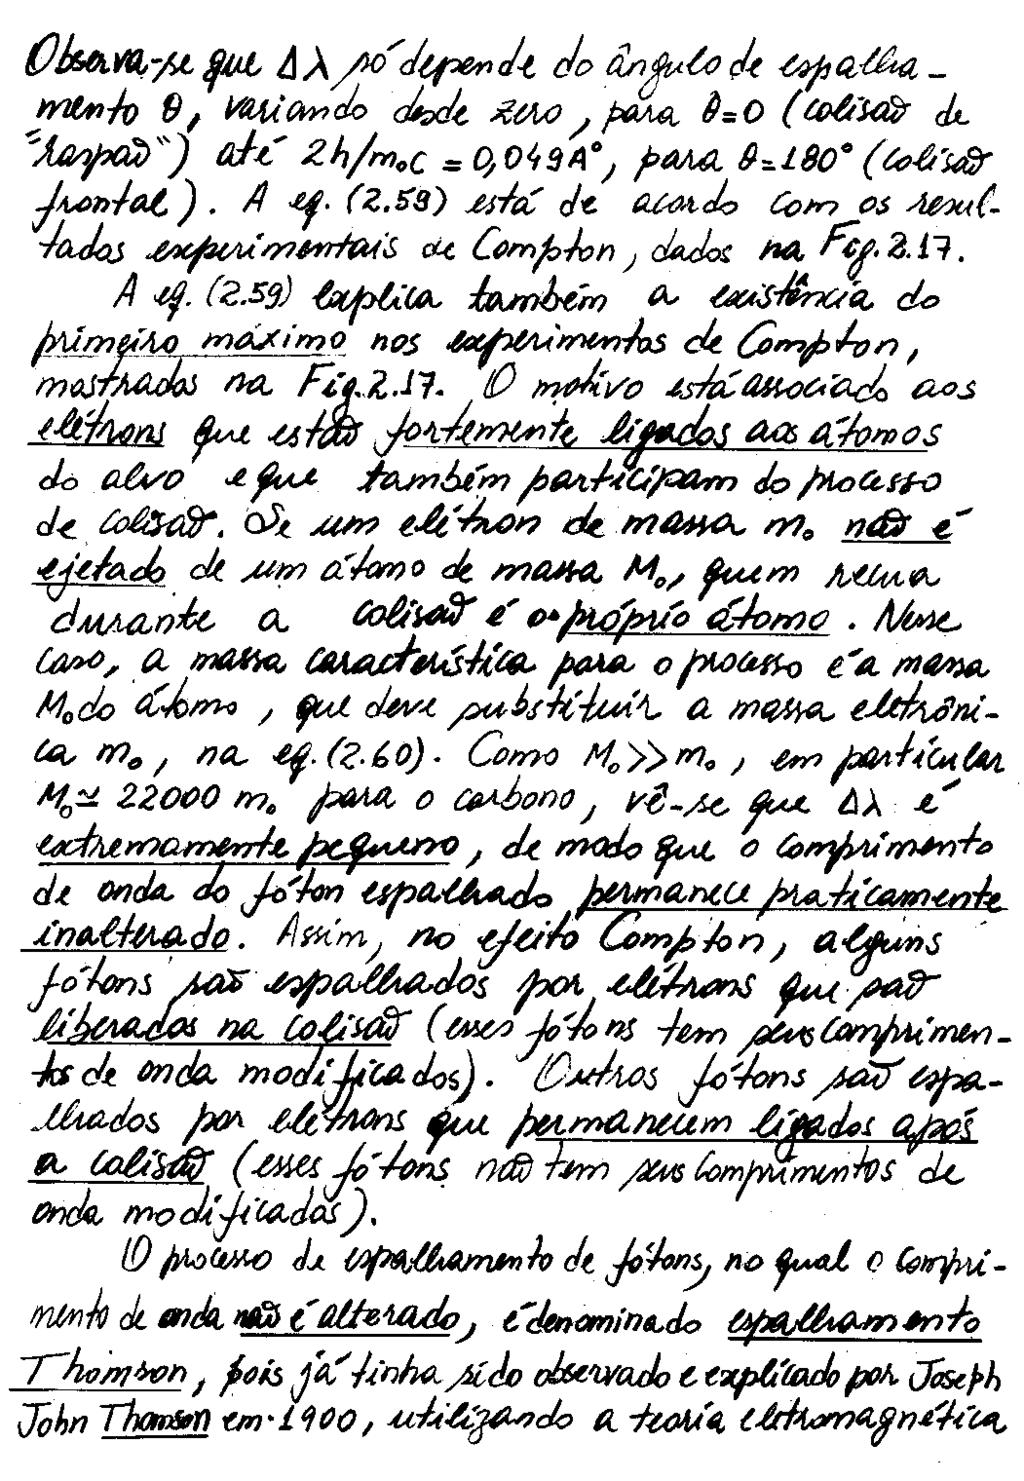 Observa-se que Δλ só depende do ângulo de espalha-
mento θ, variando desde zero, para θ=0 (colisão de
"raspão") até 2h/m₀c = 0,049A°, para θ=180° (colisão
frontal). A eq. (2.59) está de acordo com os resul-
tados experimentais de Compton, dados na Fig. 2.17.
A eq. (2.59) explica também a existência do
primeiro máximo nos experimentos de Compton,
mostrados na Fig. 2.17. O motivo está associado aos
elétrons que estão fortemente ligados aos átomos
do alvo e que também participam do processo
de colisão. Se um elétron de massa m₀ não é
ejetado de um átomo de massa M₀, quem recua
durante a colisão é o próprio átomo. Nesse
caso, a massa característica para o processo é a massa
M₀ do átomo, que deve substituir a massa eletrôni-
ca m₀, na eq. (2.60). Como M₀>>m₀, em particular
M₀≃ 22000 m₀ para o carbono, vê-se que Δλ é
extremamente pequeno, de modo que o comprimento
de onda do fóton espalhado permanece praticamente
inalterado. Assim, no efeito Compton, alguns
fótons são espalhados por elétrons que são
liberados na colisão (esses fótons tem seus comprimen-
tos de onda modificados). Outros fótons são espa-
lhados por elétrons que permanecem ligados após
a colisão (esses fótons não tem seus comprimentos de
onda modificados).
O processo de espalhamento de fótons, no qual o compri-
mento de onda não é alterado, é denominado espalhamento
Thomson, pois já tinha sido observado e explicado por Joseph
John Thomson em 1900, utilizando a teoria eletromagnética